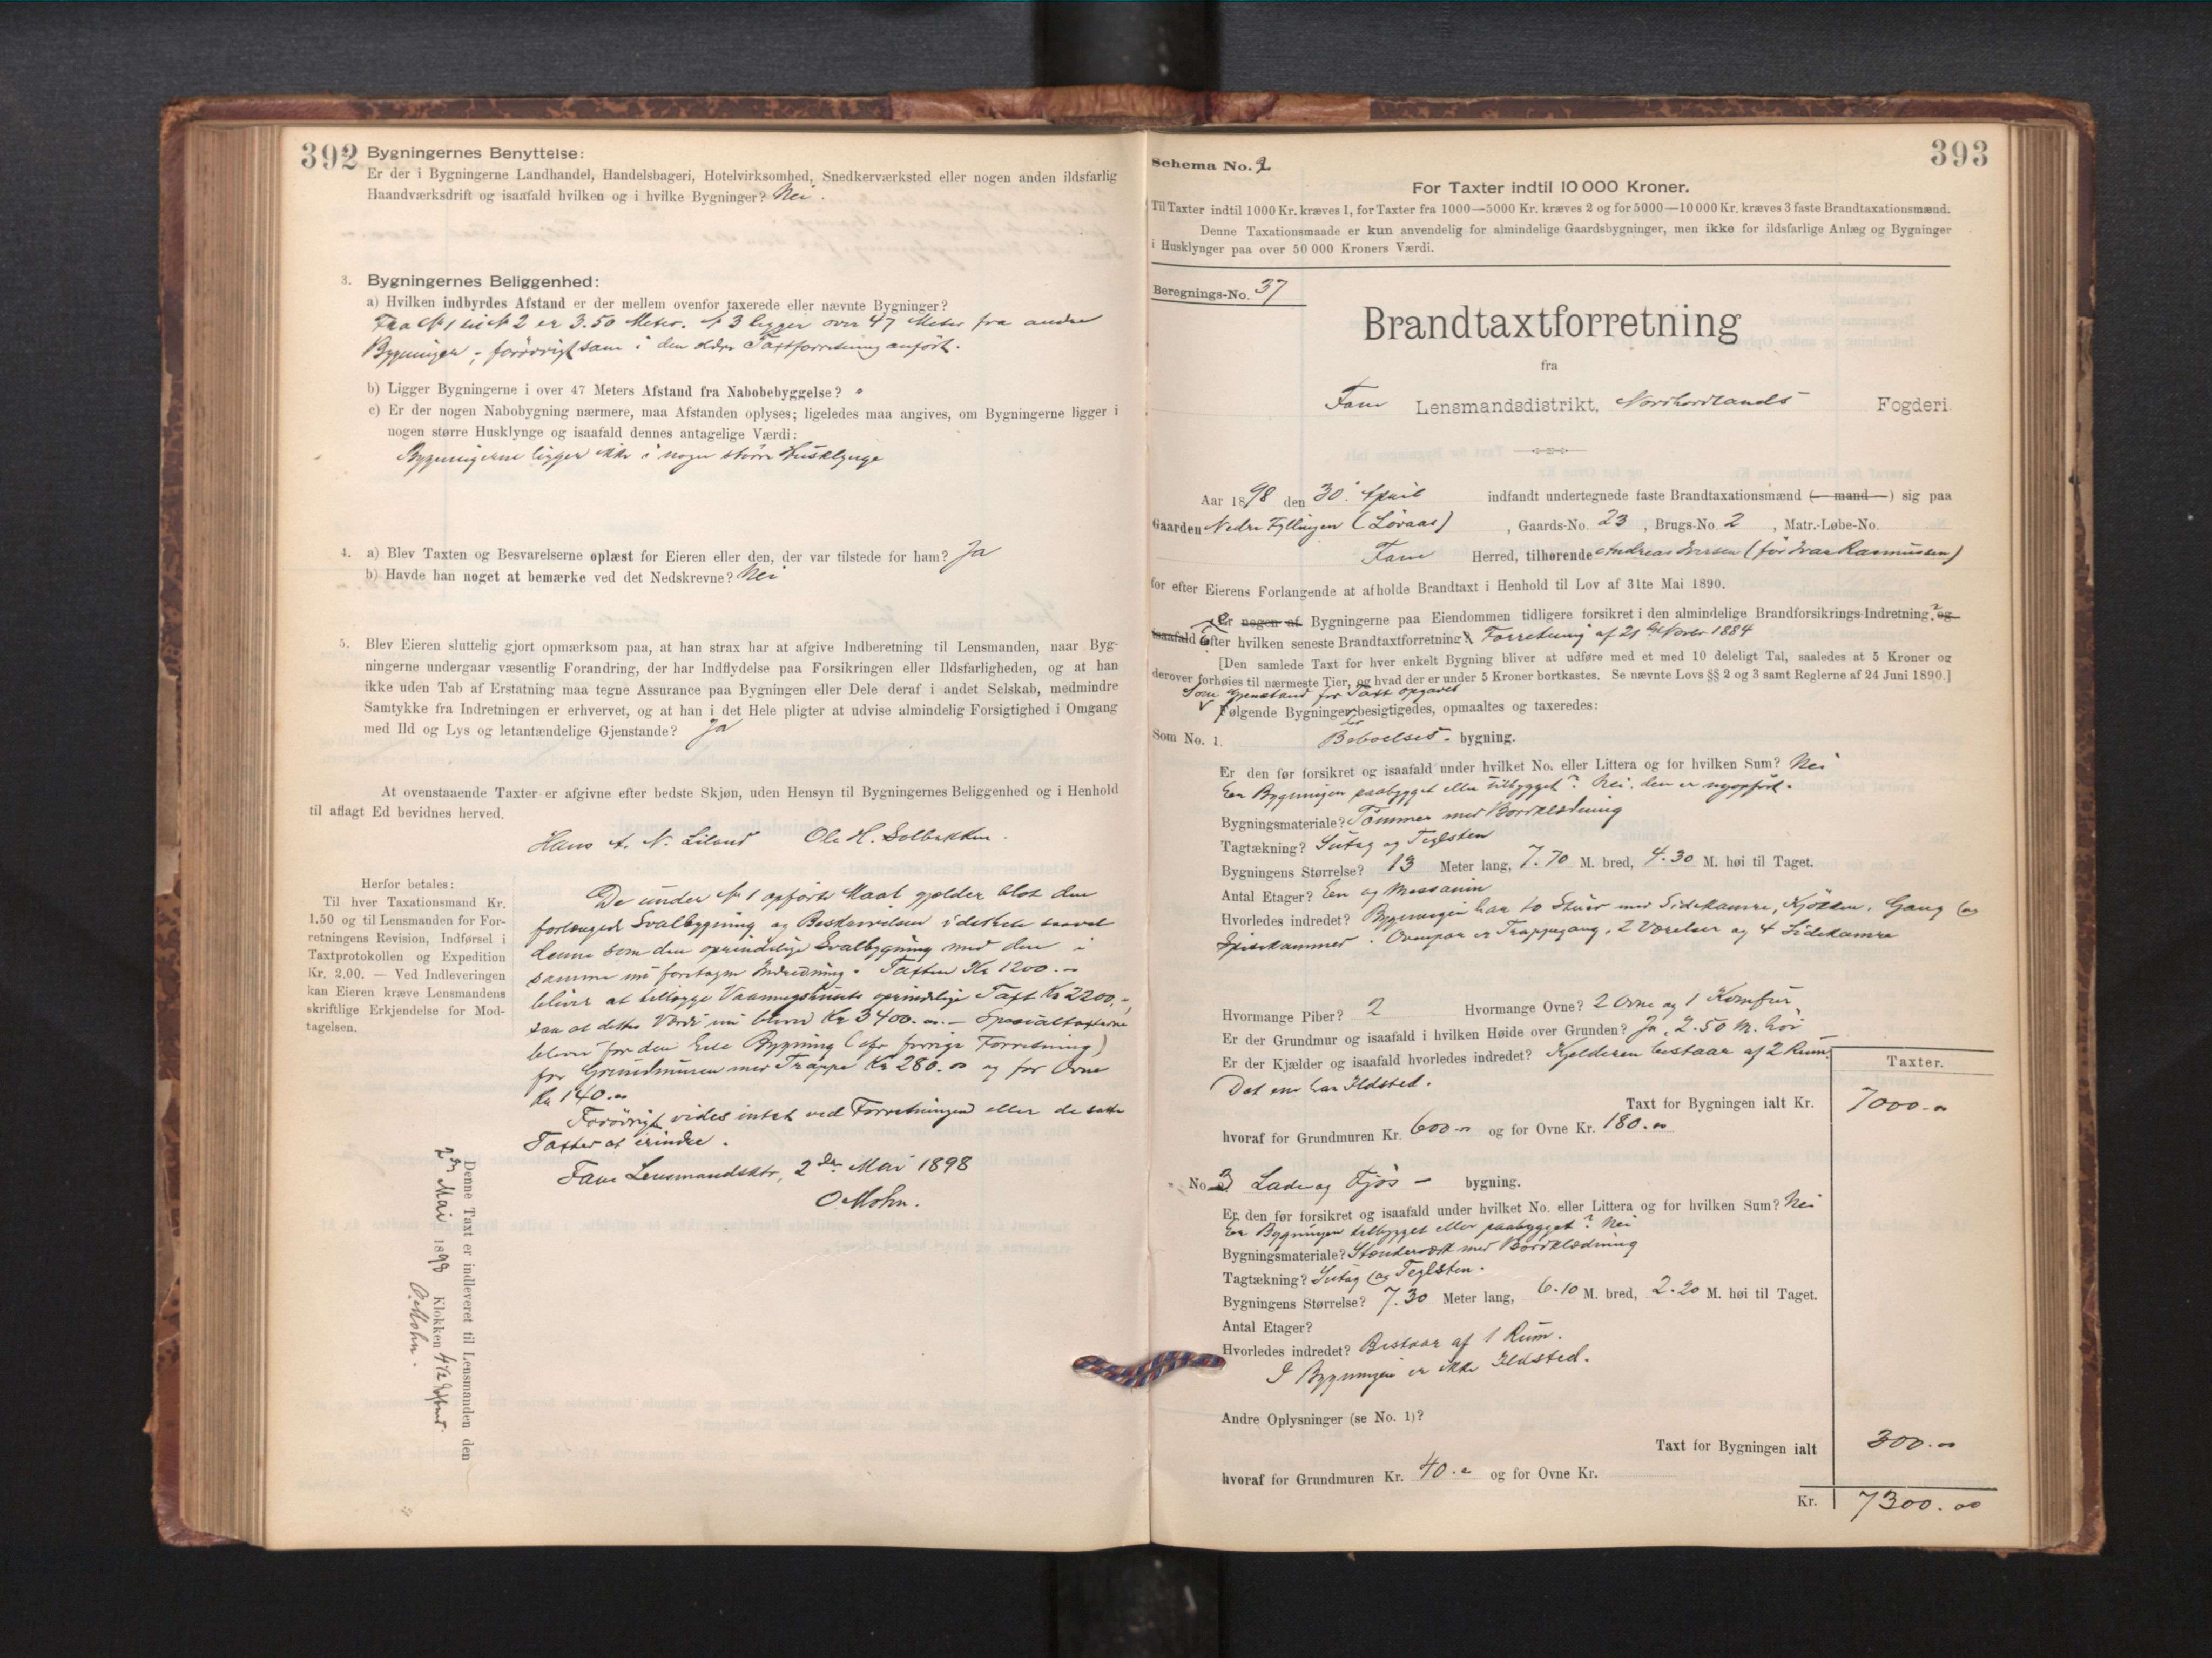 392
Bygningernes Benyttelse:
Er der i Bygningerne Landhandel, Handelsbageri, Hotelvirksomhed, Snedkerværksted eller nogen anden ildsfarlig
Haandværksdrift og isaafald hvilken og i hvilke Bygninger? Nei.
3. Bygningernes Beliggenhed:
a) Hvilken indbyrdes Afstand er der mellem ovenfor taxerede eller nævnte Bygninger?
Fra № 1 til № 2 er 3.50 Meter. № 3 ligger over 47 Meter fra andre
Bygninger; forøvrigt som i den ældre Taxtforretning anført.
b) Ligger Bygningerne i over 47 Meters Afstand fra Nabobebyggelse? "
c) Er der nogen Nabobygning nærmere, maa Afstanden oplyses; ligeledes maa angives, om Bygningerne ligger i
nogen større Husklynge og isaafald dennes antagelige Værdi:
Bygningerne ligger ikke i nogen større Husklynge
4. a) Blev Taxten og Besvarelserne oplæst for Eieren eller den, der var tilstede for ham? Ja
b) Havde han noget at bemærke ved det Nedskrevne? Nei
5. Blev Eieren sluttelig gjort opmærksom paa, at han strax har at afgive Indberetning til Lensmanden, naar Byg-
ningerne undergaar væsentlig Forandring, der har Indflydelse paa Forsikringen eller Ildsfarligheden, og at han
ikke uden Tab af Erstatning maa tegne Assurance paa Bygningen eller Dele deraf i andet Selskab, medmindre
Samtykke fra Indretningen er erhvervet, og at han i det Hele pligter at udvise almindelig Forsigtighed i Omgang
med Ild og Lys og letantændelige Gjenstande? Ja
At ovenstaaende Taxter er afgivne efter bedste Skjøn, uden Hensyn til Bygningernes Beliggenhed og i Henhold
til aflagt Ed bevidnes herved.
Hans A. N. Liland Ole H. Solbakken.
Herfor betales:
Til hver Taxationsmand Kr.
1.50 og til Lensmanden for For-
retningens Revision, Indførsel i
Taxtprotokollen og Expedition
Kr. 2.00. — Ved Indleveringen
kan Eieren kræve Lensmandens
skriftlige Erkjendelse for Mod-
tagelsen.
De under № 1 opførte Maal gjelder blot den
forlængede Svalbygning og Beskrivelsen idethele saavel
denne som den oprindelige Svalbygning med den i
samme nu foretagne Indredning. Taxten Kr 1200.-
bliver at tillægge Vaaningshusets oprindelige Taxt Kr 2200,-
saa at dettes Værdi nu bliver Kr 3400.00. - Specialtaxterne
bliver for den hele Bygning (cfr forrige Forretning)
for Grundmuren med Trappe Kr 280.00 og for Ovne
Kr 140.00
Forøvrigt vides intet ved Forretningen eller de satte
Taxter at erindre.
Fane Lensmandsktr, 2den Mai 1898
O. Mohn.
Denne Taxt er indleveret til Lensmanden den
2den Mai 1898 Klokken 4 1/2 Efterm.
O. Mohn.
393
Schema No. 2
For Taxter indtil 10 000 Kroner.
Til Taxter indtil 1000 Kr. kræves 1, for Taxter fra 1000—5000 Kr. kræves 2 og for 5000—10 000 Kr. kræves 3 faste Brandtaxationsmænd.
Denne Taxationsmaade er kun anvendelig for almindelige Gaardsbygninger, men ikke for ildsfarlige Anlæg og Bygninger
i Husklynger paa over 50 000 Kroners Værdi.
Beregnings-No. 37
Brandtaxtforretning
fra
Fane Lensmandsdistrikt, Nordhordlands Fogderi
Aar 1898 den 30. April indfandt undertegnede faste Brandtaxationsmænd (— mand —) sig paa
Gaarden Nedre Fyllingen (Løvaas), Gaards-No. 23, Brugs-No. 2, Matr.-Løbe-No.
Fane Herred, tilhørende Andreas Iversen (før Ivar Rasmussen)
for efter Eierens Forlangende at afholde Brandtaxt i Henhold til Lov af 31te Mai 1890.
Er nogen af Bygningerne paa Eiendommen tidligere forsikret i den almindelige Brandforsikrings-Indretning? og
isaafald Efter hvilken seneste Brandtaxtforretning? Forretning af 21de Novbr 1884
[Den samlede Taxt for hver enkelt Bygning bliver at udføre med et med 10 deleligt Tal, saaledes at 5 Kroner og
derover forhøies til nærmeste Tier, og hvad der er under 5 Kroner bortkastes. Se nævnte Lovs §§ 2 og 3 samt Reglerne af 24 Juni 1890.]
Som Gjenstand for Taxt opgaves
Følgende Bygninger der besigtigedes, opmaaltes og taxeredes:
Som No. 1. Beboelses- bygning.
Er den før forsikret og isaafald under hvilket No. eller Littera og for hvilken Sum? Nei
Er Bygningen paabygget eller tilbygget? Nei, den er nyopført.
Bygningsmateriale? Tømmer med Bordklædning
Tagtækning? Sutag og Teglsten
Bygningens Størrelse? 13 Meter lang, 7.70 M. bred, 4.30 M. høi til Taget.
Antal Etager? Een og Messanin
Hvorledes indredet? Bygningen har to Stuer med Sidekamre, Kjøkken, Gang og
Spisekammer. Ovenpaa er Trappegang, 2 Værelser og 4 Sidekamre
Hvormange Piber? 2 Hvormange Ovne? 2 Ovne og 1 Komfur
Er der Grundmur og isaafald i hvilken Høide over Grunden? Ja, 2.50 M. høi
Er der Kjælder og isaafald hvorledes indredet? Kjelderen bestaar af 2 Rum.
Det ene har Ildsted.
Taxter.
Taxt for Bygningen ialt Kr. 7000.00
hvoraf for Grundmuren Kr. 600.00 og for Ovne Kr. 180.00
No. 3 Lade og Fjøs - bygning.
Er den før forsikret og isaafald under hvilket No. eller Littera og for hvilken Sum? Nei
Er Bygningen tilbygget eller paabygget? Nei
Bygningsmateriale? Stenderværk med Bordklædning
Tagtækning? Sutag og Teglsten.
Bygningens Størrelse? 7.30 Meter lang, 6.10 M. bred, 2.20 M. høi til Taget.
Antal Etager?
Hvorledes indredet? Bestaar af 1 Rum.
I Bygningen er ikke Ildsted.
Andre Oplysninger (se No. 1)?
Taxt for Bygningen ialt 300.00
hvoraf for Grundmuren Kr. 40.00 og for Ovne Kr.
Kr. 7300.00